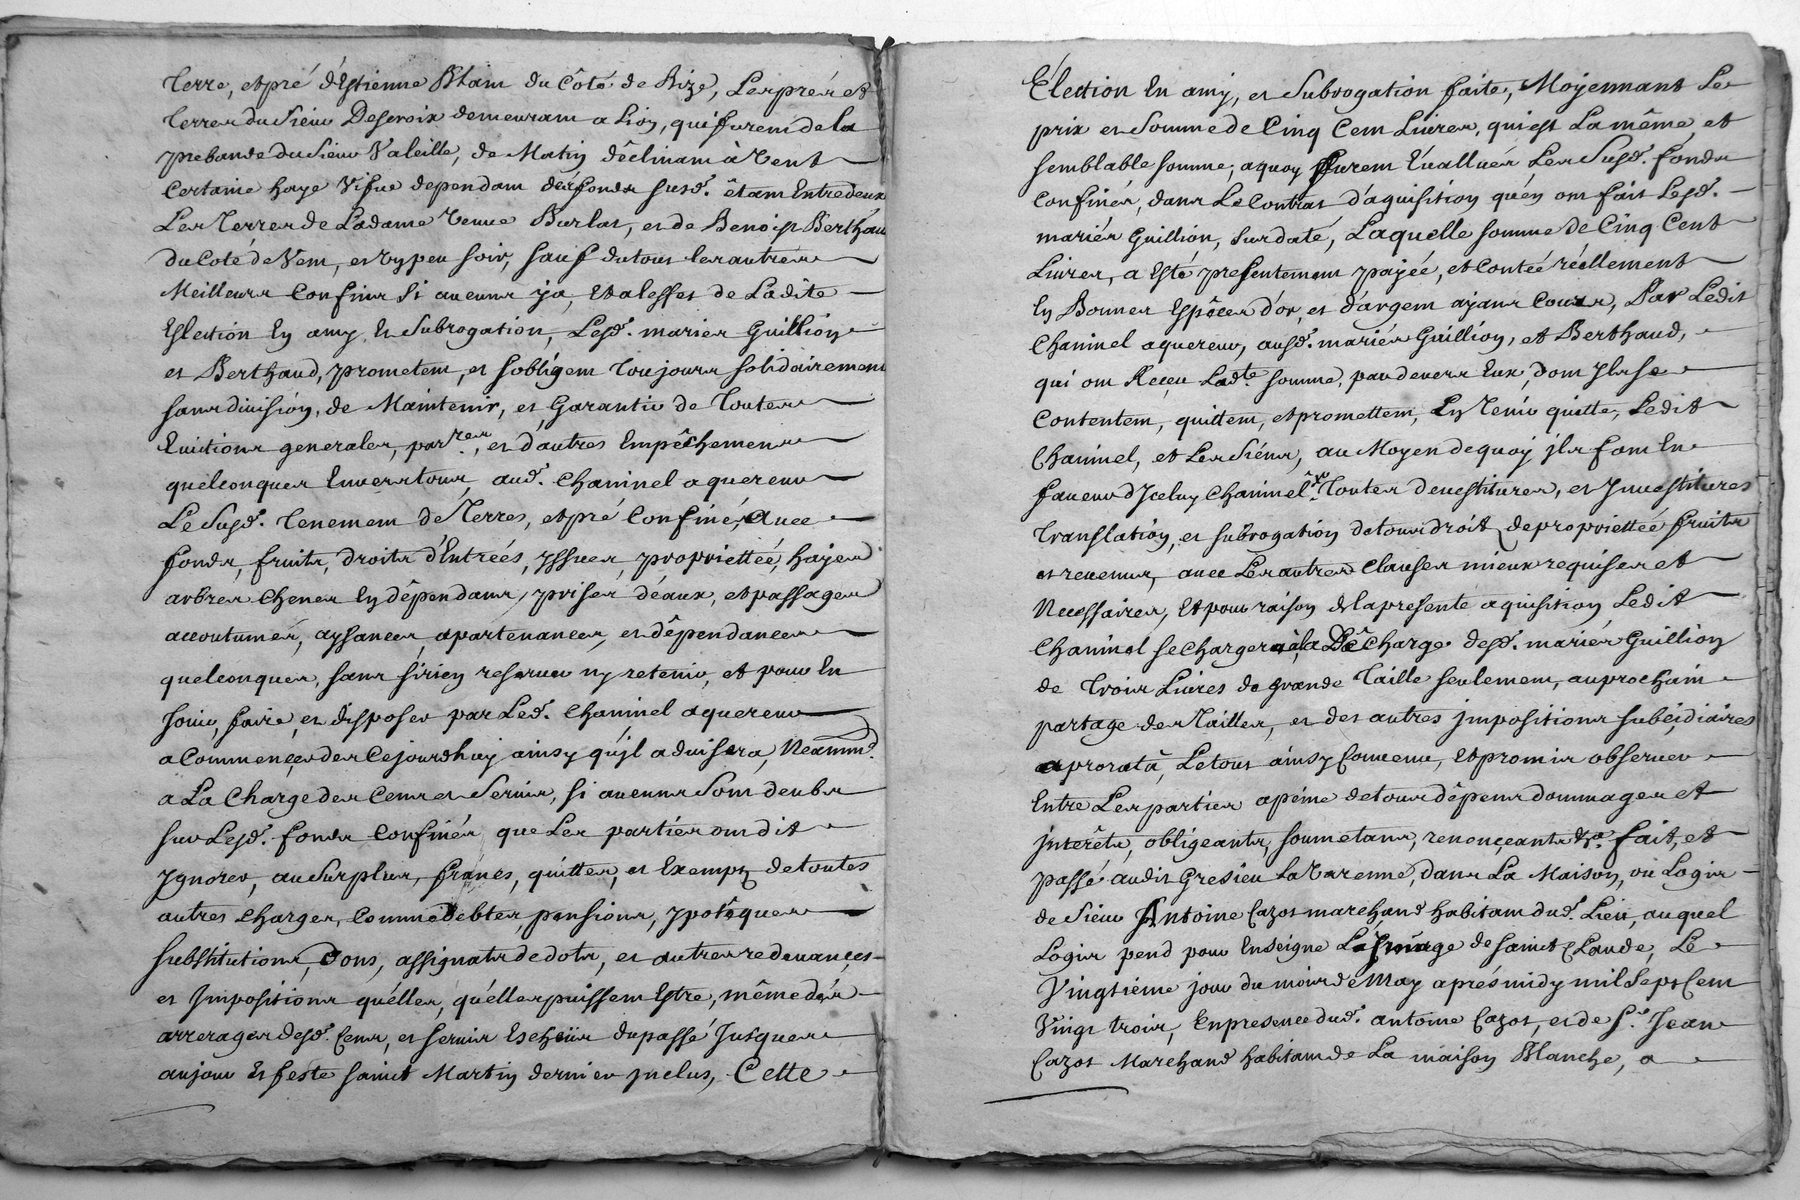 Terre, et pré d'Estienne Blain du Côté de Bize, Les prés et
Terres du Sieur Descroix demeurant a Lion, qui furent de la
prebande du Sieur Valeille, de Matin déclinant à Vent
Certaine haye Vifue dependant des fonds susd. êtant Entre deux
Les Terres de La dame Veuve Burlat, et de Benoist Berthau
du Coté de Vent, et Typeu soir, sauf du tout les autres
Meilleurs Confins Si aucuns y a, Et a l'effet de Ladite
Eslection En amy, Et Subrogation, Lesd. mariés Guillion
et Berthaud, prometent, et sobligent Toujours solidairement
sans division, de Maintenir, et Garantir de Toutes
Euictions generales, par.res, et d'autres Empêchemens
quelconques Envers tous, aud. Chaninel aquereur
Le Susd. Tenement de Terres, et pré Confinés, Avec
fonds, fruits, droits d'Entrées, yssues, proprietteé, hayes
arbres Chenes En dépendans, prises d'eaux, et passages
accoutumés, aysances, apartenances, et dépendances
quelconques, sans si rien reserver ny retenir, et pour En
Jouir, faire, et disposer par Led. Chaninel aquereur
a Commencer des Cejourdhuy ainsy qu'jl aduisera, Neanm.
a La Charge des Cens et Servis, si aucuns Sont deubs
sur Lesd. fonds Confinés que Les parties ont dit
Ygnorer, au Surplus, francs, quittes, et Exempt de toutes
autres charges, Comme debtes, pensions, ypotêques
substitutions, Dons, assignats de dots, et autres redevances
et Impositions qu'elles, qu'elles puissent Estre, même des
arrerages desd. Cens, et servis Escheüs du passé Jusques
au jour Et feste saint Martin dernier jnclus, Cette
Élection En amy, et Subrogation faite, Moyennant Le
prix et Somme de Cinq Cent Livres, qui est La même et
semblable somme, a quoy furent Evallués Les Susd. fonds
Confinés, dans Le Contrat d'aquisition qu'en ont fait Lesd.
mariés Guillion, Surdaté, Laquelle somme de Cinq Cent
Livres, a Esté presentement payée, et Contée réellement
En Bonnes Espêces d'or, et d'argent ayans Cours, Par Ledit
Chaninel aquereur, ausd. mariés Guillion, et Berthaud,
qui ont Receu Lad.te somme, par devers Eux, dont Jls se
Contentent, quittent, et promettent, En Tenir quitte, Ledit
Chaninel, et Les Siéns, au Moyen de quoy jls font En
faveur d'Jceluy Chaninel Toutes devestitures, et Jnvestitures
Translation, et subrogation de tous droit de proprietteé fruits
et revenus, avec Les autres Clauses mieux requises et
Necessaires, Et pour raison de la presente aquisition Ledit
Chaninel se Chargera à la Dêcharge desd. mariés Guillion
de Trois Livres de grande Taille seulement, au prochain
partage des Tailles, et des autres jmpositions subcidiaires
a proratâ, Le tout ainsy Convenu, Et promis observer
Entre Les parties a péine de tous dêpens dommages et
jnterêts, obligeants, soumetans, renonçeants &a. fait, et
passé audit Gresieu La Varenne, dans La Maison, ou Logis
de Sieur Antoine Cazot marchand habitant dud. Lieu, auquel
Logis pend pour Enseigne L'jmage de saint Claude, Le
Vingtième jour du mois de May aprés midy mil Sept Cent
Vingt trois, En presence dud. antoine Cazot, et de S.r Jean
Cazot Marchand habitant de La maison Blanche, a